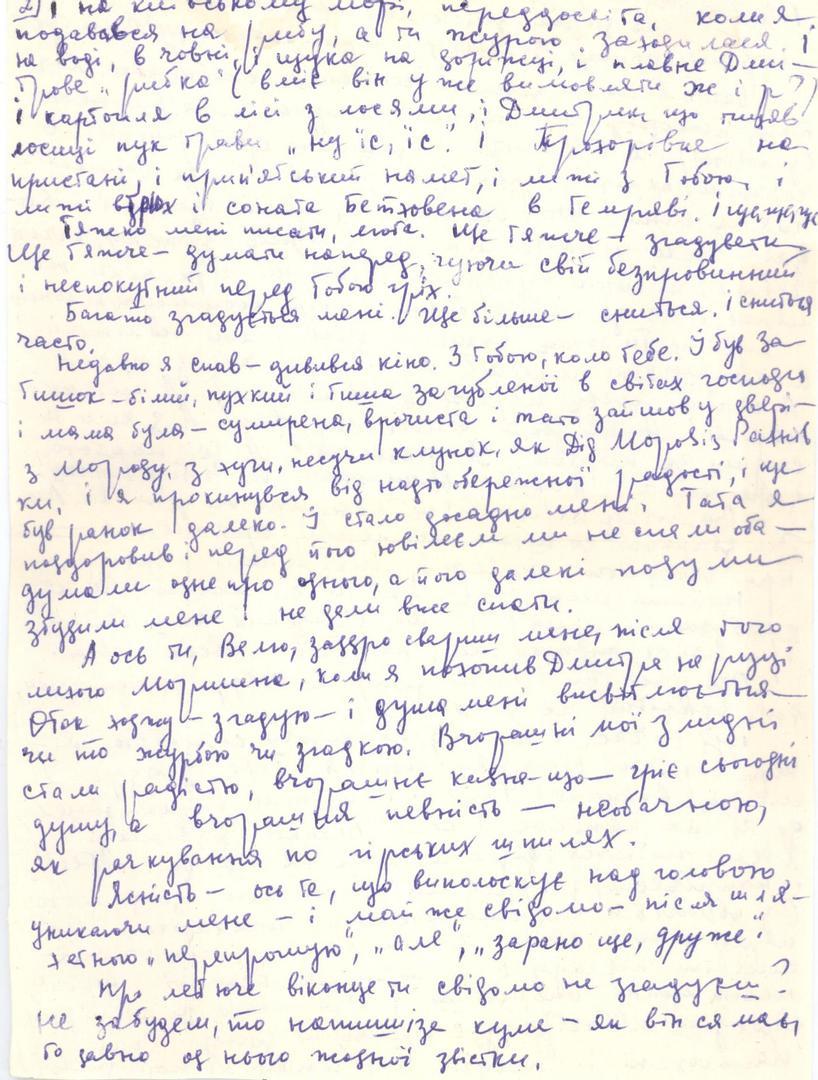 2) І на київському морі, переддосвіта, коли я
подавався на рибу, а ти журою заходилася. І
на воді, в човні, і щука на доріжці, і плавне Дми-
трове „рибка” (вміє він уже вимовляти же і р?)
і картопля в лісі з лосями, і Дмитрик, що тицяв
лосиці пук трави „ну їс, їс”. І Прохорівка на
пристані, і прип'ятський намет, і лижі з Тобою, і
лижі втрьох і соната Бетховена в темряві. І ще, ще, ще
Тяжко мені писати, люба. Ще тяжче – згадувати.
Ще тяжче – думати наперед, чуючи свій безпровинний
і неспокутний перед Тобою гріх.
Багато згадується мені. Ще більше – сниться. І сниться
часто.
Недавно я спав – дивився кіно. З Тобою, коло Тебе. І був за-
тишок – білий, пухкий і тиша загубленої в світах господи
і мама була – сумирена, врочиста і тато зайшов у двері –
з морозу, з хуги, несучи клунок, як Дід Мороз із Рахнів
ки, і я прокинувся від надто обережної радості, і ще
був ранок далеко. І стало досадно мені. Тата я
поздоровив і перед його ювілеєм ми не спали оба –
думали одне про одного, а його далекі подуми
збудили мене і не дали вже спати.
А ось ти, Валю, заздро свариш мене, після того
лихого Моршина, коли я похопив Дмитра на руці
Отак ходжу – згадую – і душа мені висвітлюється
чи то журбою чи згадкою. Вчорашні мої злидні
стали радістю, вчорашнє казна-що – гріє сьогодні
душу, а вчорашня певність – необачною,
як рачкування по гірських шпилях.
Ясність – ось те, що виполіскує над головою,
уникаючи мене – і майже свідомо – після шля-
хетного „перепрошую”, „але”, „зарано ще, друже”.
Про летюче віконце ти свідомо не згадуєш?
Не забудем, то напиши за куме – як він ся має,
бо давно од нього жодної звістки.